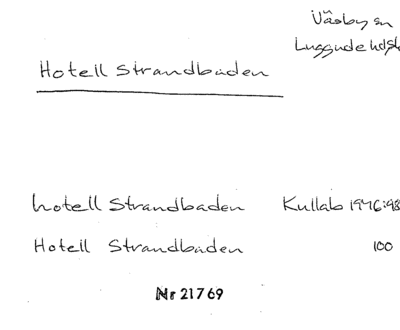 Väsby sn
Luggude hds
Hotell Strandbaden
hotell Strandbaden Kullab 1946:98
Hotell Strandbaden 100
Nr 21769